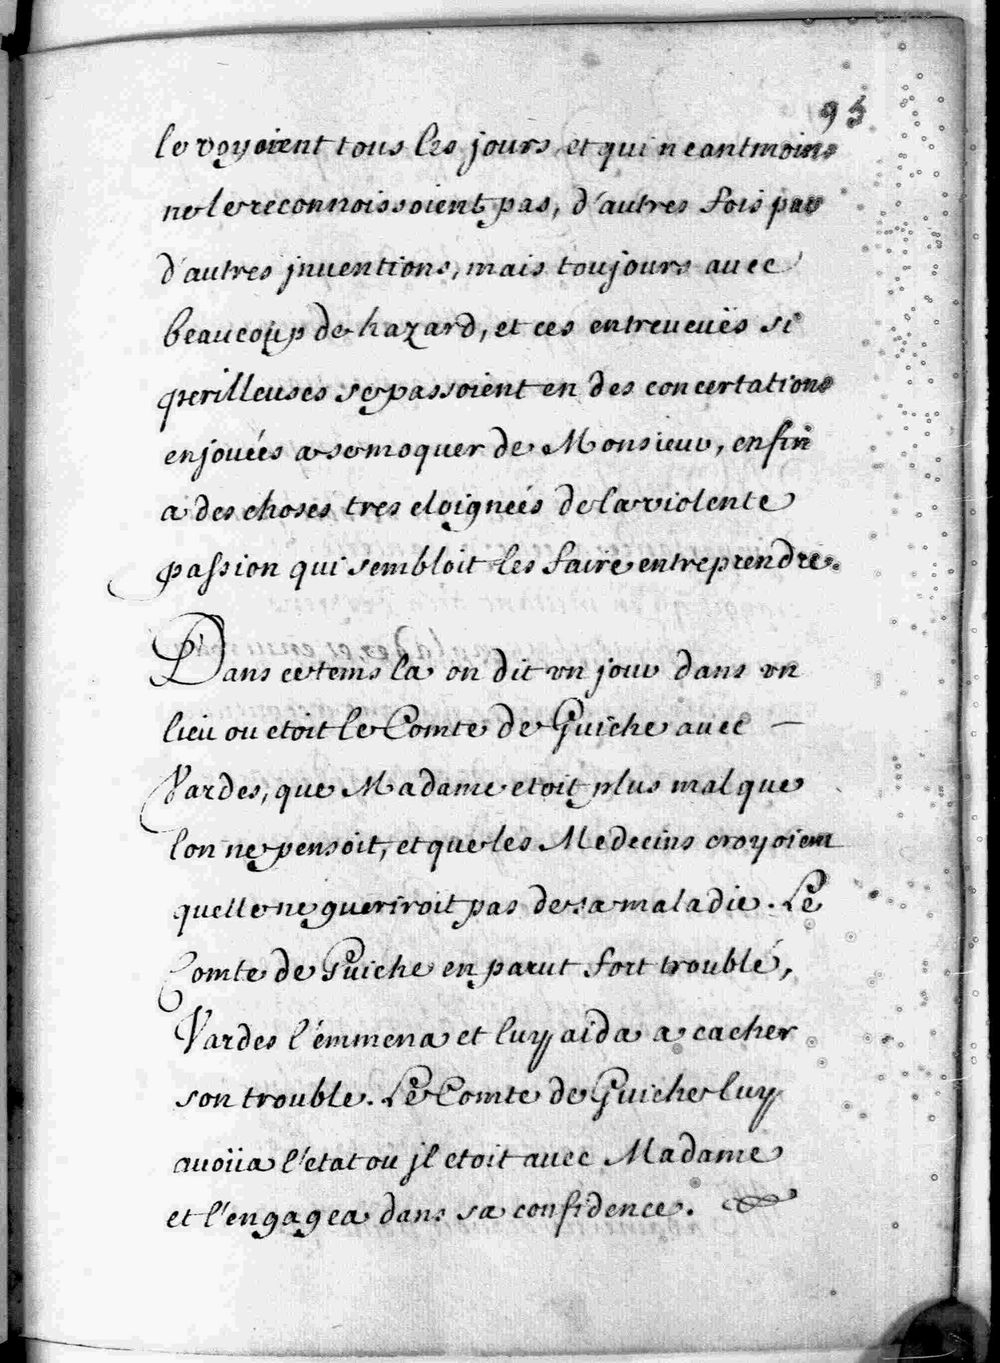 95
le voyoient tous les jours, et qui neantmoins
ne le reconnoissoient pas, d'autres fois par
d'autres jnventions, mais toujours avec
beaucoup de hazard, et ces entreveuës si
perilleuses se passoient en des concertations
enjouées a se moquer de Monsieur, enfin
a des choses tres eloignées de la violente
passion qui sembloit les faire entreprendre.
Dans ce tems la on dit vn jour dans vn
lieu ou etoit le Comte de Guiche avec
Vardes, que Madame etoit plus mal que
lon ne pensoit, et que les Medecins croyoient
quelle ne gueriroit pas de sa maladie. Le
Comte de Guiche en parut fort troublé,
Vardes l'émmena et luy aida a cacher
son trouble. Le Comte de Guiche luy
avoüa l'etat ou jl etoit avec Madame
et l'engagea dans sa confidence.